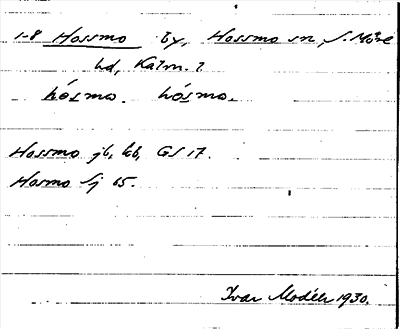 1-8 Hossmo By, Hossmo sn, S. Möre
hd, Kalm. l
hósmo. hósmo.
Hossmo jb, kb, GS 17.
Hosmo Sj 65.
Ivar Modéer 1930.